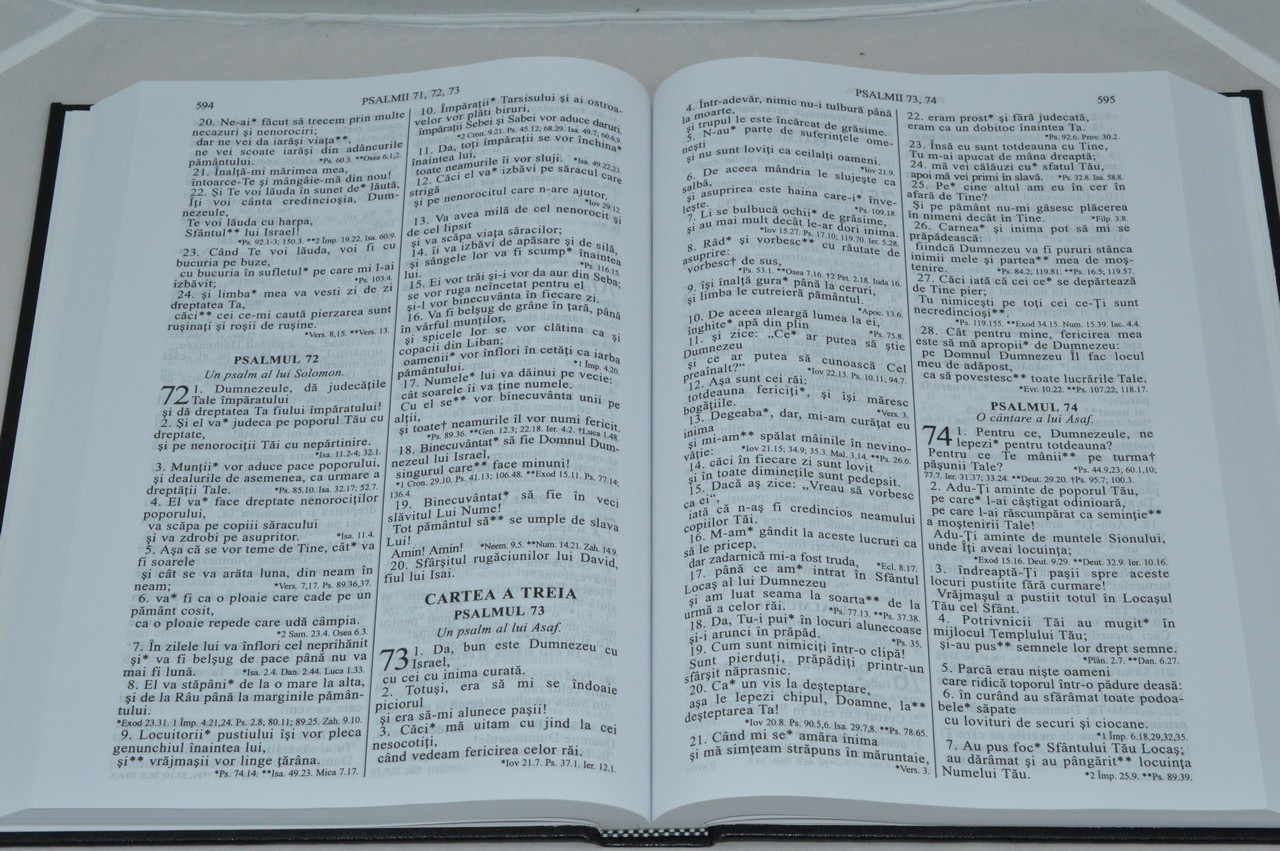 594
PSALMII 71, 72, 73
20. Ne-ai* făcut să trecem prin multe
necazuri şi nenorociri;
dar ne vei da iarăşi viaţa**,
ne vei scoate iarăşi din adâncurile
pământului. *Ps. 60.3. **Osea 6.1,2.
21. Înalţă-mi mărimea mea,
întoarce-Te şi mângâie-mă din nou!
22. Şi Te voi lăuda în sunet de* lăută,
Îţi voi cânta credincioşia, Dum-
nezeule,
Te voi lăuda cu harpa,
Sfântul** lui Israel!
*Ps. 92.1-3, 150.3. **2 Împ. 19.22. Isa. 60.9.
23. Când Te voi lăuda, voi fi cu
bucuria pe buze,
cu bucuria în sufletul* pe care mi l-ai
izbăvit; *Ps. 103.4.
24. şi limba* mea va vesti zi de zi
dreptatea Ta,
căci** cei ce-mi caută pierzarea sunt
ruşinaţi şi roşii de ruşine.
*Vers. 8,15. **Vers. 13.
PSALMUL 72
Un psalm al lui Solomon.
72 1. Dumnezeule, dă judecăţile
Tale împăratului
şi dă dreptatea Ta fiului împăratului!
2. Şi el va* judeca pe poporul Tău cu
dreptate,
şi pe nenorociţii Tăi cu nepărtinire.
*Isa. 11.2-4; 32.1.
3. Munţii* vor aduce pace poporului,
şi dealurile de asemenea, ca urmare a
dreptăţii Tale. *Ps. 85.10. Isa. 32.17; 52.7.
4. El va* face dreptate nenorociţilor
poporului,
va scăpa pe copiii săracului
şi va zdrobi pe asupritor. *Isa. 11.4.
5. Aşa că se vor teme de Tine, cât* va
fi soarele
şi cât se va arăta luna, din neam în
neam, *Vers. 7,17. Ps. 89.36,37.
6. va* fi ca o ploaie care cade pe un
pământ cosit,
ca o ploaie repede care udă câmpia.
*2 Sam. 23.4. Osea 6.3.
7. În zilele lui va înflori cel neprihănit
şi* va fi belşug de pace până nu va
mai fi lună. *Isa. 2.4. Dan. 2.44. Luca 1.33.
8. El va stăpâni* de la o mare la alta,
şi de la Râu până la marginile pămân-
tului.
*Exod 23.31. 1 Împ. 4.21,24. Ps. 2.8; 80.11; 89.25. Zah. 9.10.
9. Locuitorii* pustiului îşi vor pleca
genunchiul înaintea lui,
şi** vrăjmaşii vor linge ţărâna.
*Ps. 74.14. **Isa. 49.23. Mica 7.17.
10. Împăraţii* Tarsisului şi ai ostroa-
velor vor plăti biruri,
împăraţii Sebei şi Sabei vor aduce daruri.
*2 Cron. 9.21. Ps. 45.12; 68.29. Isa. 49.7; 60.6,9.
11. Da, toţi împăraţii se vor închina*
înaintea lui,
toate neamurile îi vor sluji. *Isa. 49.22,23.
12. Căci el va* izbăvi pe săracul care
strigă
şi pe nenorocitul care n-are ajutor.
*Iov 29.12.
13. Va avea milă de cel nenorocit şi
de cel lipsit
şi va scăpa viaţa săracilor;
14. îi va izbăvi de apăsare şi de silă,
şi sângele lor va fi scump* înaintea
lui. *Ps. 116.15.
15. Ei vor trăi şi-i vor da aur din Seba;
se vor ruga neîncetat pentru el
şi-l vor binecuvânta în fiecare zi.
16. Va fi belşug de grâne în ţară, până
în vârful munţilor,
şi spicele lor se vor clătina ca şi
copacii din Liban;
oamenii* vor înflori în cetăţi ca iarba
pământului. *1 Împ. 4.20.
17. Numele* lui va dăinui pe vecie:
cât soarele îi va ţine numele.
Cu el se** vor binecuvânta unii pe
alţii,
şi toate† neamurile îl vor numi fericit.
*Ps. 89.36. **Gen. 12.3; 22.18. Ier. 4.2. †Luca 1.48.
18. Binecuvântat* să fie Domnul Dum-
nezeul lui Israel,
singurul care** face minuni!
*1 Cron. 29.10. Ps. 41.13; 106.48. **Exod 15.11. Ps. 77.14;
136.4.
19. Binecuvântat* să fie în veci
slăvitul Lui Nume!
Tot pământul să** se umple de slava
Lui!
Amin! Amin! *Neem. 9.5. **Num. 14.21. Zah. 14.9.
20. Sfârşitul rugăciunilor lui David,
fiul lui Isai.
CARTEA A TREIA
PSALMUL 73
Un psalm al lui Asaf.
73 1. Da, bun este Dumnezeu cu
Israel,
cu cei cu inima curată.
2. Totuşi, era să mi se îndoaie
piciorul
şi era să-mi alunece paşii!
3. Căci* mă uitam cu jind la cei
nesocotiţi,
când vedeam fericirea celor răi.
*Iov 21.7. Ps. 37.1. Ier. 12.1.
PSALMII 73, 74
595
4. Într-adevăr, nimic nu-i tulbură până
la moarte,
şi trupul le este încărcat de grăsime.
5. N-au* parte de suferinţele ome-
neşti
şi nu sunt loviţi ca ceilalţi oameni.
*Iov 21.9.
6. De aceea mândria le slujeşte ca
salbă,
şi asuprirea este haina care-i* înve-
leşte. *Ps. 109.18.
7. Li se bulbucă ochii* de grăsime,
şi au mai mult decât le-ar dori inima.
*Iov 15.27. Ps. 17.10; 119.70. Ier. 5.28.
8. Râd* şi vorbesc** cu răutate de
asuprire:
vorbesc† de sus,
*Ps. 53.1. **Osea 7.16. †2 Pet. 2.18. Iuda 16.
9. îşi înalţă gura* până la ceruri,
şi limba le cutreieră pământul.
*Apoc. 13.6.
10. De aceea aleargă lumea la ei,
înghite* apă din plin *Ps. 75.8.
11. şi zice: „Ce* ar putea să ştie
Dumnezeu
şi ce ar putea să cunoască Cel
preaînalt?“ *Iov 22.13. Ps. 10.11; 94.7.
12. Aşa sunt cei răi:
totdeauna fericiţi*, şi îşi măresc
bogăţiile. *Vers. 3.
13. Degeaba*, dar, mi-am curăţat eu
inima
şi mi-am** spălat mâinile în nevino-
văţie: *Iov 21.15; 34.9; 35.3. Mal. 3.14. **Ps. 26.6.
14. căci în fiecare zi sunt lovit
şi în toate dimineţile sunt pedepsit.
15. Dacă aş zice: „Vreau să vorbesc
ca ei“,
iată că n-aş fi credincios neamului
copiilor Tăi.
16. M-am* gândit la aceste lucruri ca
să le pricep,
dar zadarnică mi-a fost truda, *Ecl. 8.17.
17. până ce am* intrat în Sfântul
Locaş al lui Dumnezeu
şi am luat seama la soarta** de la
urmă a celor răi. *Ps. 77.13. **Ps. 37.38.
18. Da, Tu-i pui* în locuri alunecoase
şi-i arunci în prăpăd. *Ps. 35.
19. Cum sunt nimiciţi într-o clipă!
Sunt pierduţi, prăpădiţi printr-un
sfârşit năprasnic.
20. Ca* un vis la deşteptare,
aşa le lepezi chipul, Doamne, la**
deşteptarea Ta!
*Iov 20.8. Ps. 90.5,6. Isa. 29.7,8. **Ps. 78.65.
21. Când mi se* amăra inima
şi mă simţeam străpuns în măruntaie,
*Vers. 3.
22. eram prost* şi fără judecată,
eram ca un dobitoc înaintea Ta.
*Ps. 92.6. Prov. 30.2.
23. Însă eu sunt totdeauna cu Tine,
Tu m-ai apucat de mâna dreaptă;
24. mă vei călăuzi cu* sfatul Tău,
apoi mă vei primi în slavă. *Ps. 32.8. Isa. 58.8.
25. Pe* cine altul am eu în cer în
afară de Tine?
Şi pe pământ nu-mi găsesc plăcerea
în nimeni decât în Tine. *Filp. 3.8.
26. Carnea* şi inima pot să mi se
prăpădească:
fiindcă Dumnezeu va fi pururi stânca
inimii mele şi partea** mea de moş-
tenire. *Ps. 84.2; 119.81. **Ps. 16.5; 119.57.
27. Căci iată că cei ce* se depărtează
de Tine pier;
Tu nimiceşti pe toţi cei ce-Ţi sunt
necredincioşi**.
*Ps. 119.155. **Exod 34.15. Num. 15.39. Iac. 4.4.
28. Cât pentru mine, fericirea mea
este să mă apropii* de Dumnezeu:
pe Domnul Dumnezeu Îl fac locul
meu de adăpost,
ca să povestesc** toate lucrările Tale.
*Evr. 10.22. **Ps. 107.22; 118.17.
PSALMUL 74
O cântare a lui Asaf.
74 1. Pentru ce, Dumnezeule, ne
lepezi* pentru totdeauna?
Pentru ce Te mânii** pe turma†
păşunii Tale? *Ps. 44.9,23; 60.1,10;
77.7. Ier. 31.37; 33.24. **Deut. 29.20. †Ps. 95.7; 100.3.
2. Adu-Ţi aminte de poporul Tău,
pe care* l-ai câştigat odinioară,
pe care l-ai răscumpărat ca seminţie**
a moştenirii Tale!
Adu-Ţi aminte de muntele Sionului,
unde Îţi aveai locuinţa;
*Exod 15.16. Deut. 9.29. **Deut. 32.9. Ier. 10.16.
3. îndreaptă-Ţi paşii spre aceste
locuri pustiite fără curmare!
Vrăjmaşul a pustiit totul în Locaşul
Tău cel Sfânt.
4. Potrivnicii Tăi au mugit* în
mijlocul Templului Tău;
şi-au pus** semnele lor drept semne.
*Plân. 2.7. **Dan. 6.27.
5. Parcă erau nişte oameni
care ridică toporul într-o pădure deasă:
6. în curând au sfărâmat toate podoa-
bele* săpate
cu lovituri de securi şi ciocane.
*1 Împ. 6.18,29,32,35.
7. Au pus foc* Sfântului Tău Locaş;
au dărâmat şi au pângărit** locuinţa
Numelui Tău. *2 Împ. 25.9. **Ps. 89.39.